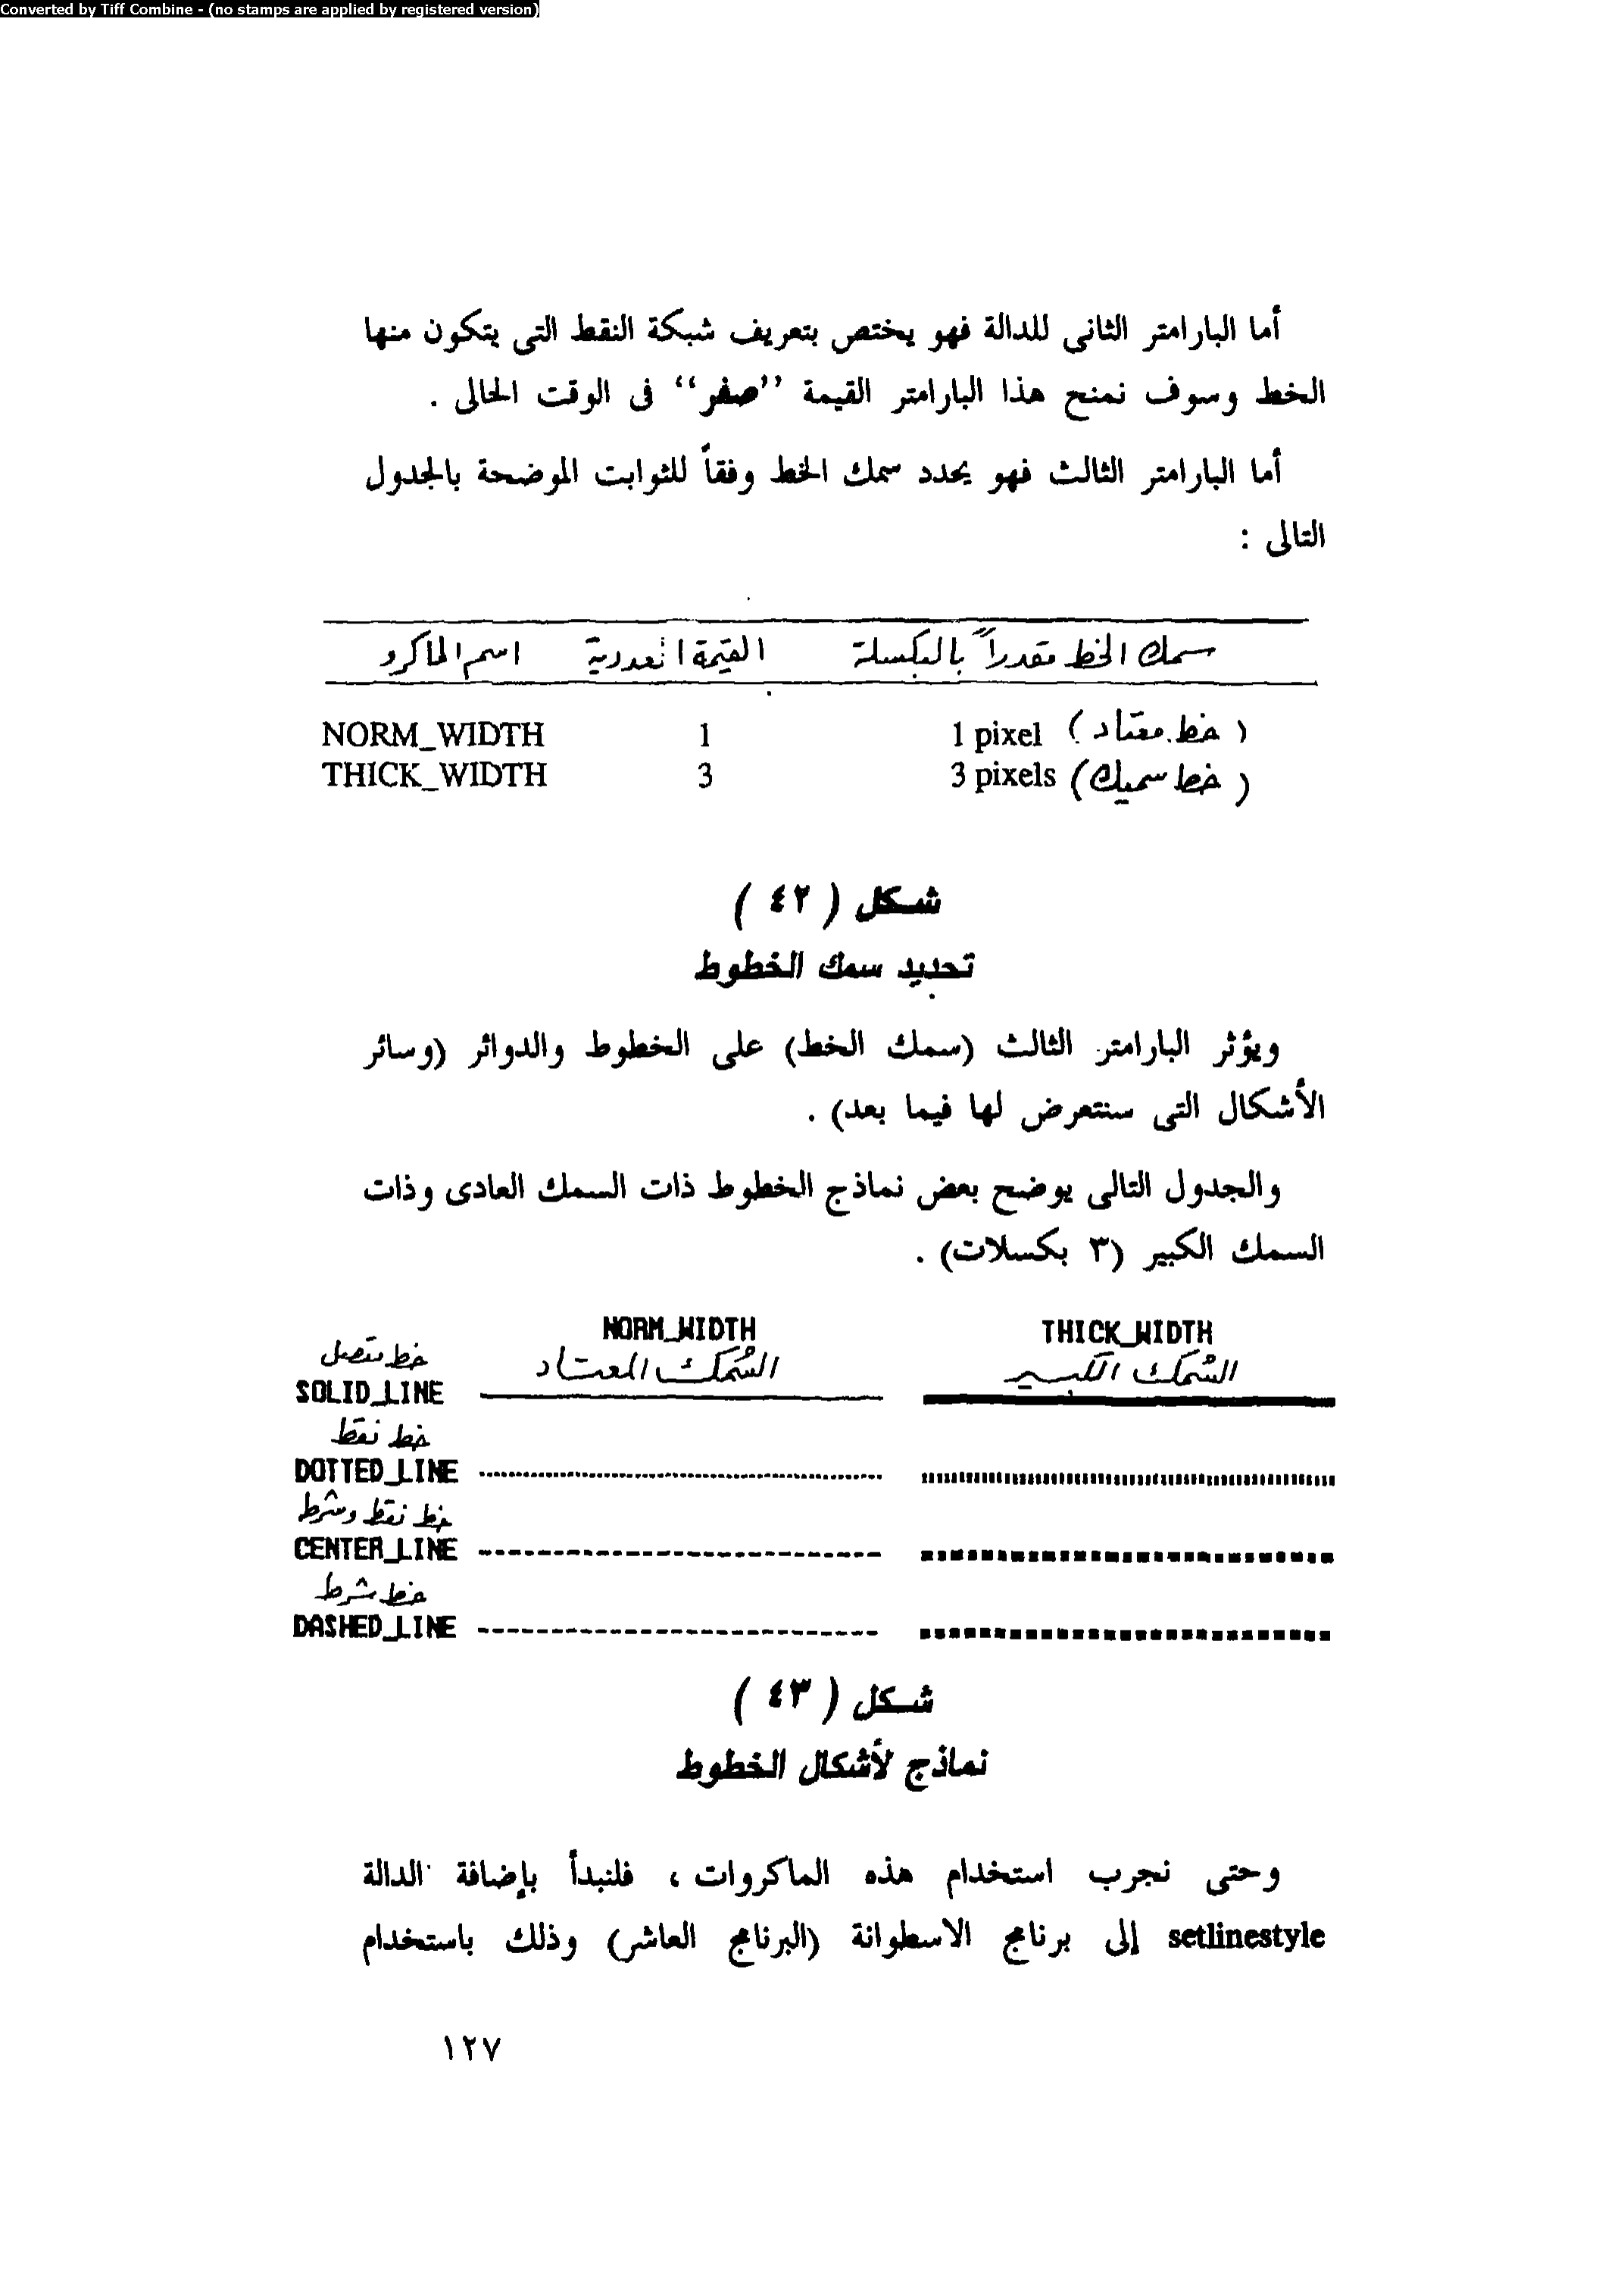 Converted by Tiff Combine - (no stamps are applied by registered version)
أما البارامتر الثانى للدالة فهو يختص بتعريف شبكة النقط التى يتكون منها
الخط وسوف نمنح هذا البارامتر القيمة ”صفر“ فى الوقت الحالى .
أما البارامتر الثالث فهو يحدد سمك الخط وفقاً للثوابت الموضحة بالجدول
التالى :
اسم الماكرو القيمة العددية سمك الخط مقدراً بالبكسلة
NORM_WIDTH 1 1 pixel (خط معتاد)
THICK_WIDTH 3 3 pixels (خط سميك)
شكل ( ٤٢ )
تحديد سمك الخطوط
ويؤثر البارامتر الثالث (سمك الخط) على الخطوط والدوائر (وسائر
الأشكال التى سنتعرض لها فيما بعد) .
والجدول التالى يوضح بعض نماذج الخطوط ذات السمك العادى وذات
السمك الكبير (٣ بكسلات) .
NORM_WIDTH THICK_WIDTH
خط متصل السُمك المعتاد السُمك الكبير
SOLID_LINE
خط نقط
DOTTED_LINE
خط نقط وشرط
CENTER_LINE
خط شرط
DASHED_LINE
شكل ( ٤٣ )
نماذج لأشكال الخطوط
وحتى نجرب استخدام هذه الماكروات ، فلنبدأ بإضافة الدالة
setlinestyle إلى برنامج الاسطوانة (البرنامج العاشر) وذلك باستخدام
١٢٧